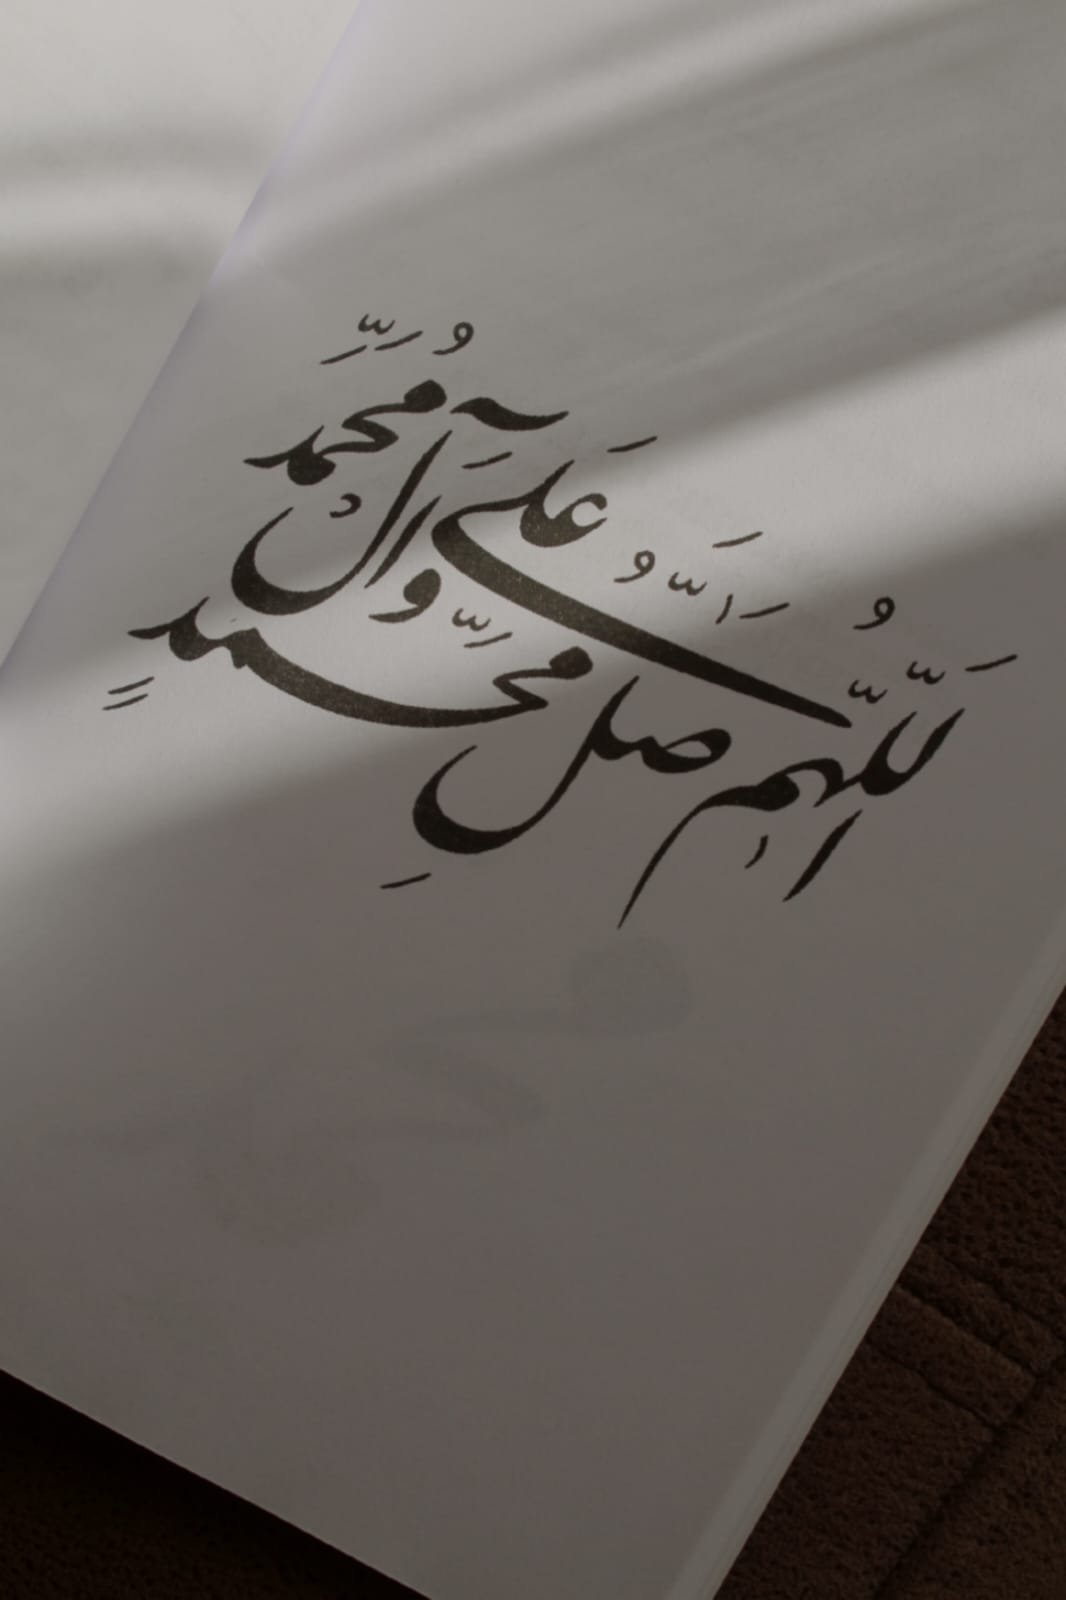 اللّٰهُمَّ صَلِّ عَلَى مُحَمَّدٍ وَآلِ مُحَمَّد